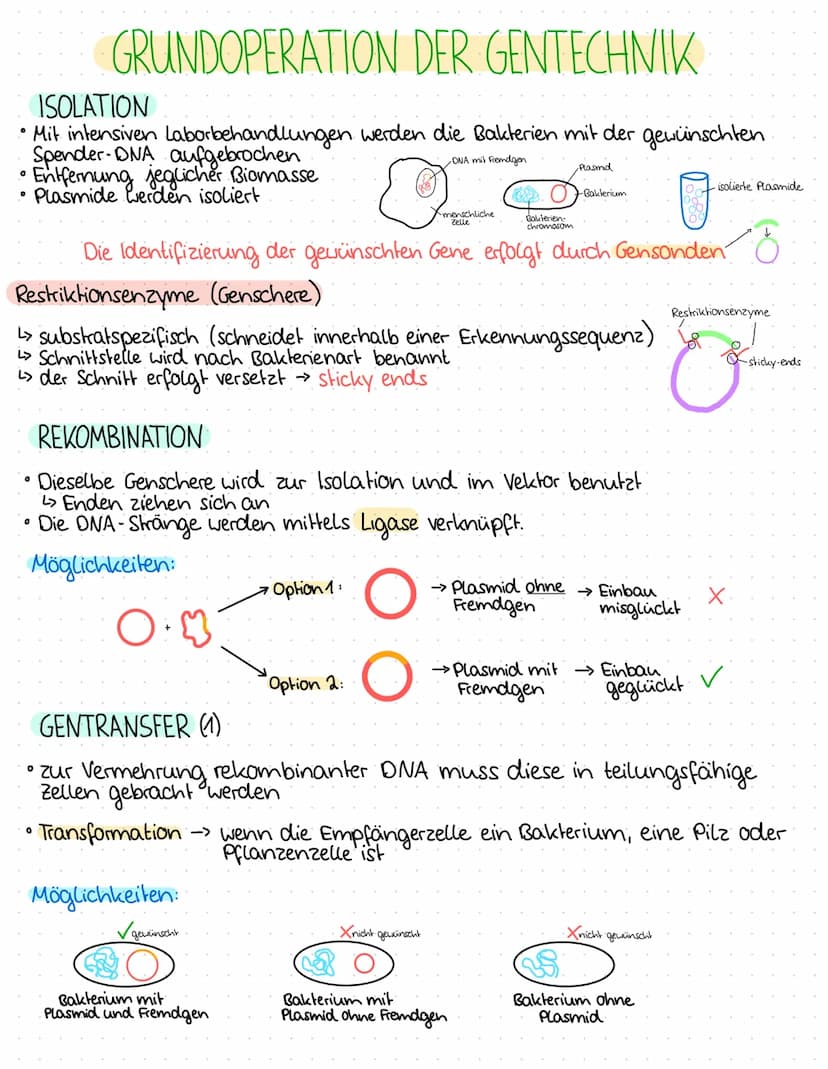 GRUNDOPERATION DER GENTECHNIK
ISOLATION
• Mit intensiven Laborbehandlungen werden die Bakterien mit der gewünschten
Spender-DNA aufgebrochen
• Entfernung jeglicher Biomasse
• Plasmide werden isoliert
DNA mit Fremdgen
menschliche
Zelle
Plasmid
Bakterium
Bakterien-
chromosom
isolierte Plasmide
Die Identifizierung der gewünschten Gene erfolgt durch Gensonden
Restriktionsenzyme (Genschere)
↳ substratspezifisch (schneidet innerhalb einer Erkennungssequenz)
↳ Schnittstelle wird nach Bakterienart benannt
↳ der Schnitt erfolgt versetzt → sticky ends
Restriktionsenzyme
sticky-ends
REKOMBINATION
• Dieselbe Genschere wird zur Isolation und im Vektor benutzt
↳ Enden ziehen sich an
• Die DNA-Stränge werden mittels Ligase verknüpft.
Möglichkeiten:
+
Option 1:
→ Plasmid ohne → Einbau
Fremdgen misglückt
Option 2:
→ Plasmid mit → Einbau
Fremdgen geglückt
GENTRANSFER (1)
• zur Vermehrung rekombinanter DNA muss diese in teilungsfähige
Zellen gebracht werden
• Transformation → wenn die Empfängerzelle ein Bakterium, eine Pilz oder
Pflanzenzelle ist
Möglichkeiten:
gewünscht
Bakterium mit
Plasmid und Fremdgen
nicht gewünscht
Bakterium mit
Plasmid ohne Fremdgen
nicht gewünscht
Bakterium ohne
Plasmid